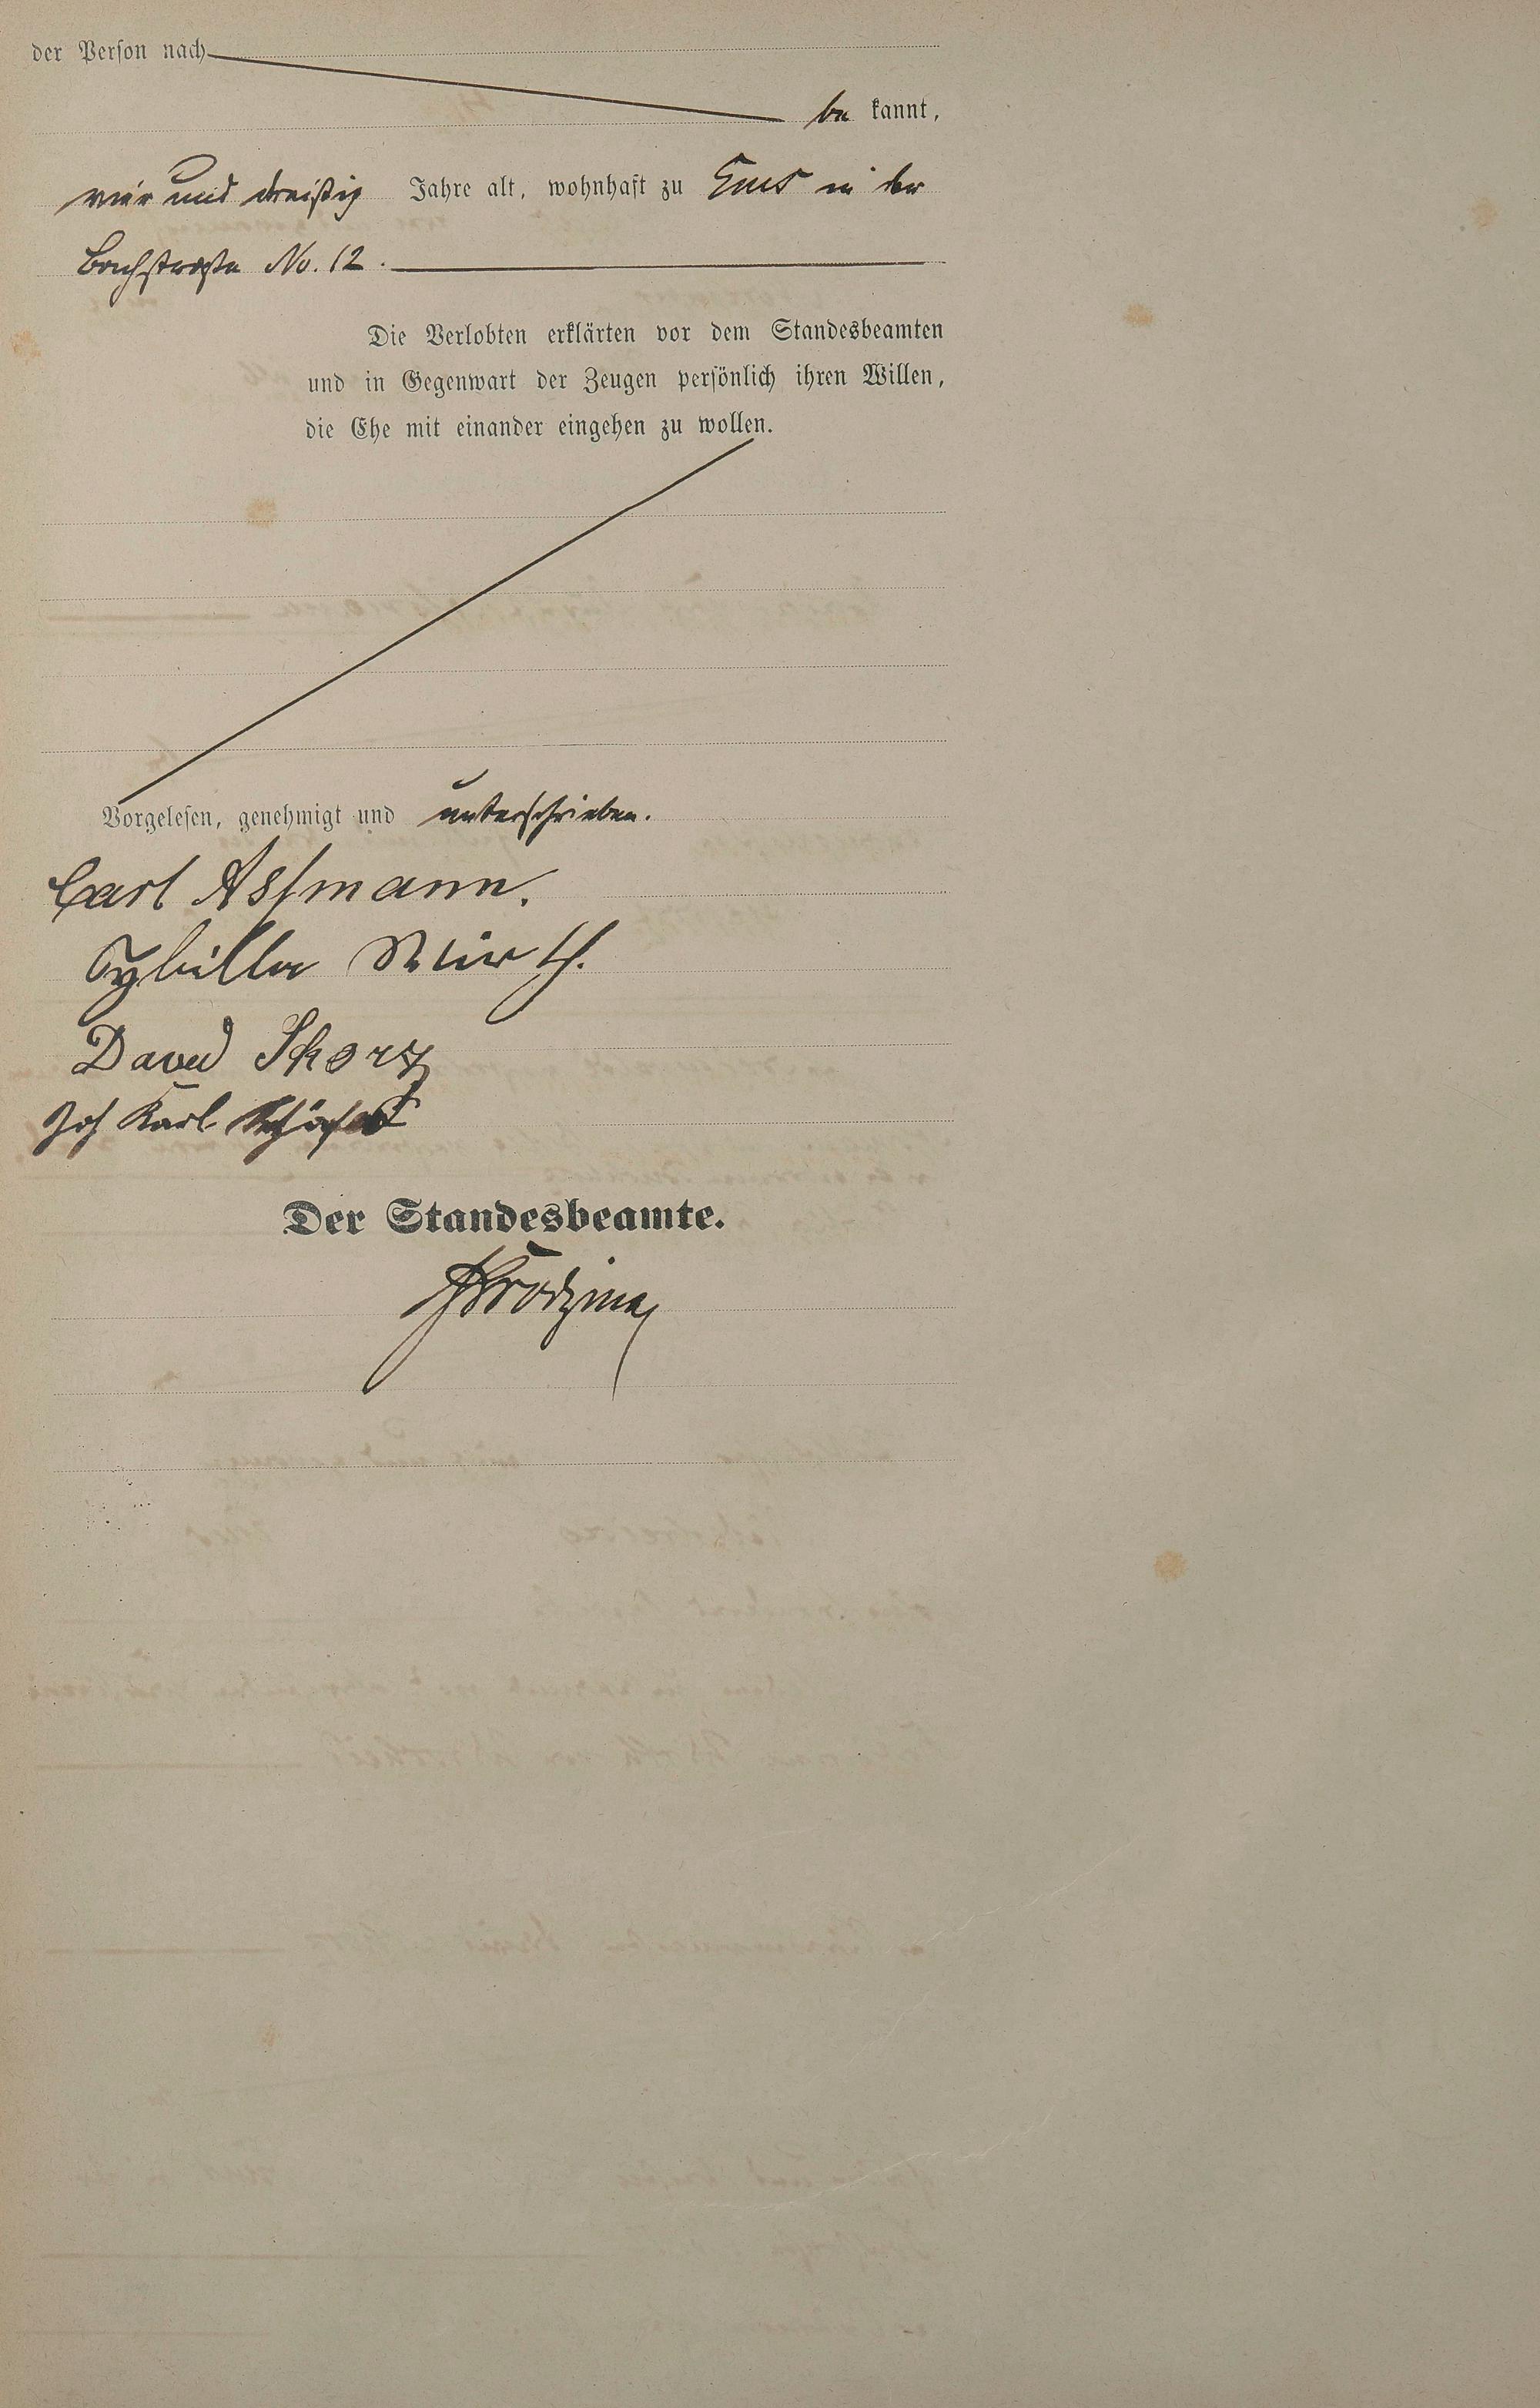 der Person nach
be kannt,
vier und dreißig Jahre alt, wohnhaft zu Ems in der
Bachstraße No. 12.
Die Verlobten erklärten vor dem Standesbeamten
und in Gegenwart der Zeugen persönlich ihren Willen,
die Ehe mit einander eingehen zu wollen.
Vorgelesen, genehmigt und unterschrieben.
Carl Assmann.
Sybilla Wirth.
David Skorz
Joh Karl
Der Standesbeamte.